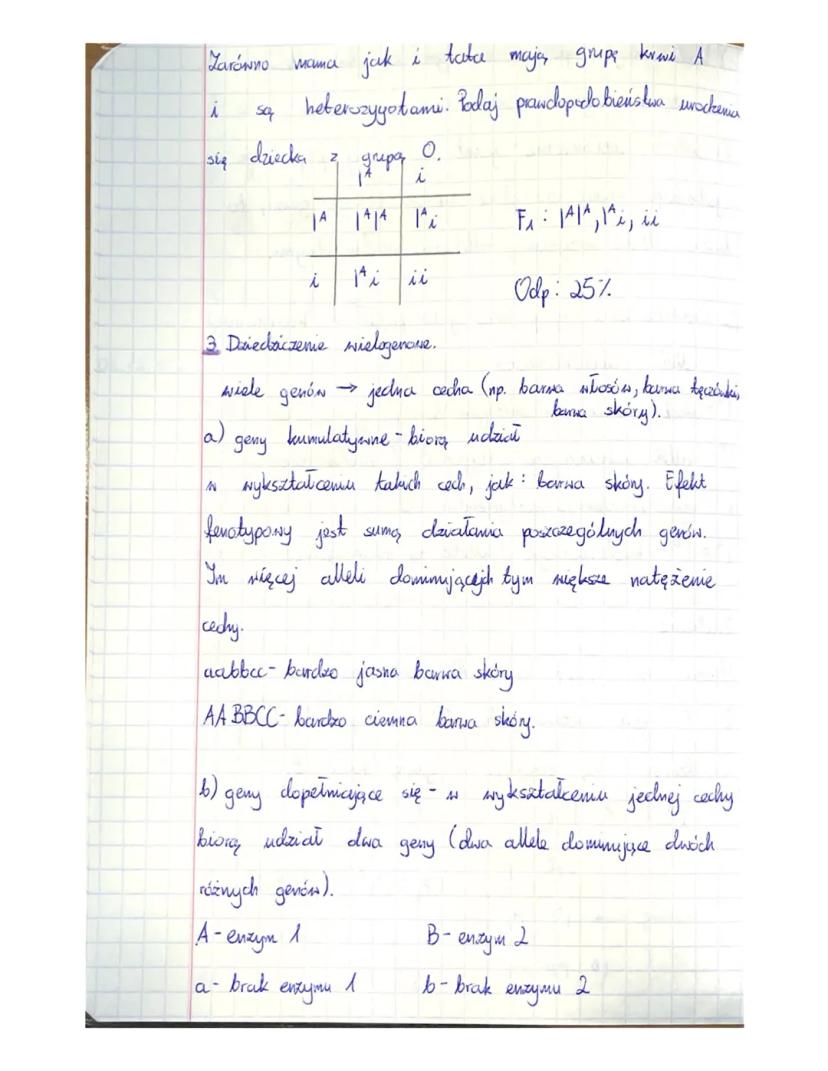 Zarówno mama jak i tata mają grupę krwi A
i są heterozygotami. Podaj prawdopodobieństwa urodzenia
się dziecka z grupą O.
I^A i
I^A I^A I^A I^A i
i I^A i ii
F₁ : I^A I^A, I^A i, ii
Odp: 25%
3. Dziedziczenie wielogenowe.
wiele genów → jedna cecha (np. barwa włosów, barwa tęczówki,
barwa skóry).
a) geny kumulatywne - biorą udział
w wykształceniu takich cech, jak: barwa skóry. Efekt
fenotypowy jest sumą działania poszczególnych genów.
Im więcej alleli dominujących tym większe natężenie
cechy.
aabbcc - bardzo jasna barwa skóry
AABBCC - bardzo ciemna barwa skóry.
b) geny dopełniające się - w wykształceniu jednej cechy
biorą udział dwa geny (dwa allele dominujące dwóch
różnych genów).
A - enzym 1 B - enzym 2
a - brak enzymu 1 b - brak enzymu 2